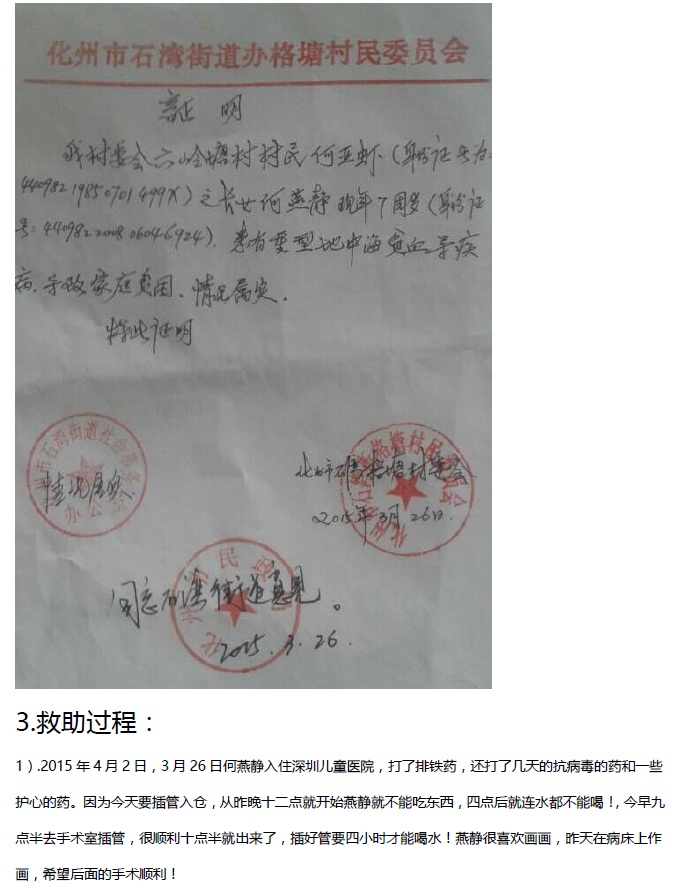 化州市石湾街道办格塘村民委员会
证 明
我村委会六岭塘村村民何亚虾（身份证号为:
44098219850701499X）之长女何燕静现年7周岁（身份证
号: 440982200806046924）。患有重型地中海贫血导疾
病。导致家庭贫困、情况属实。
特此证明
州市石湾街道社会事务
办公
情况属实
化州市石湾格塘村委会
2015年3月26日.
同意石湾街道意见。
2015.3.26.
3.救助过程：
1）.2015年4月2日，3月26日何燕静入住深圳儿童医院，打了排铁药，还打了几天的抗病毒的药和一些
护心的药。因为今天要插管入仓，从昨晚十二点就开始燕静就不能吃东西，四点后就连水都不能喝！, 今早九
点半去手术室插管，很顺利十点半就出来了，插好管要四小时才能喝水！燕静很喜欢画画，昨天在病床上作
画，希望后面的手术顺利！